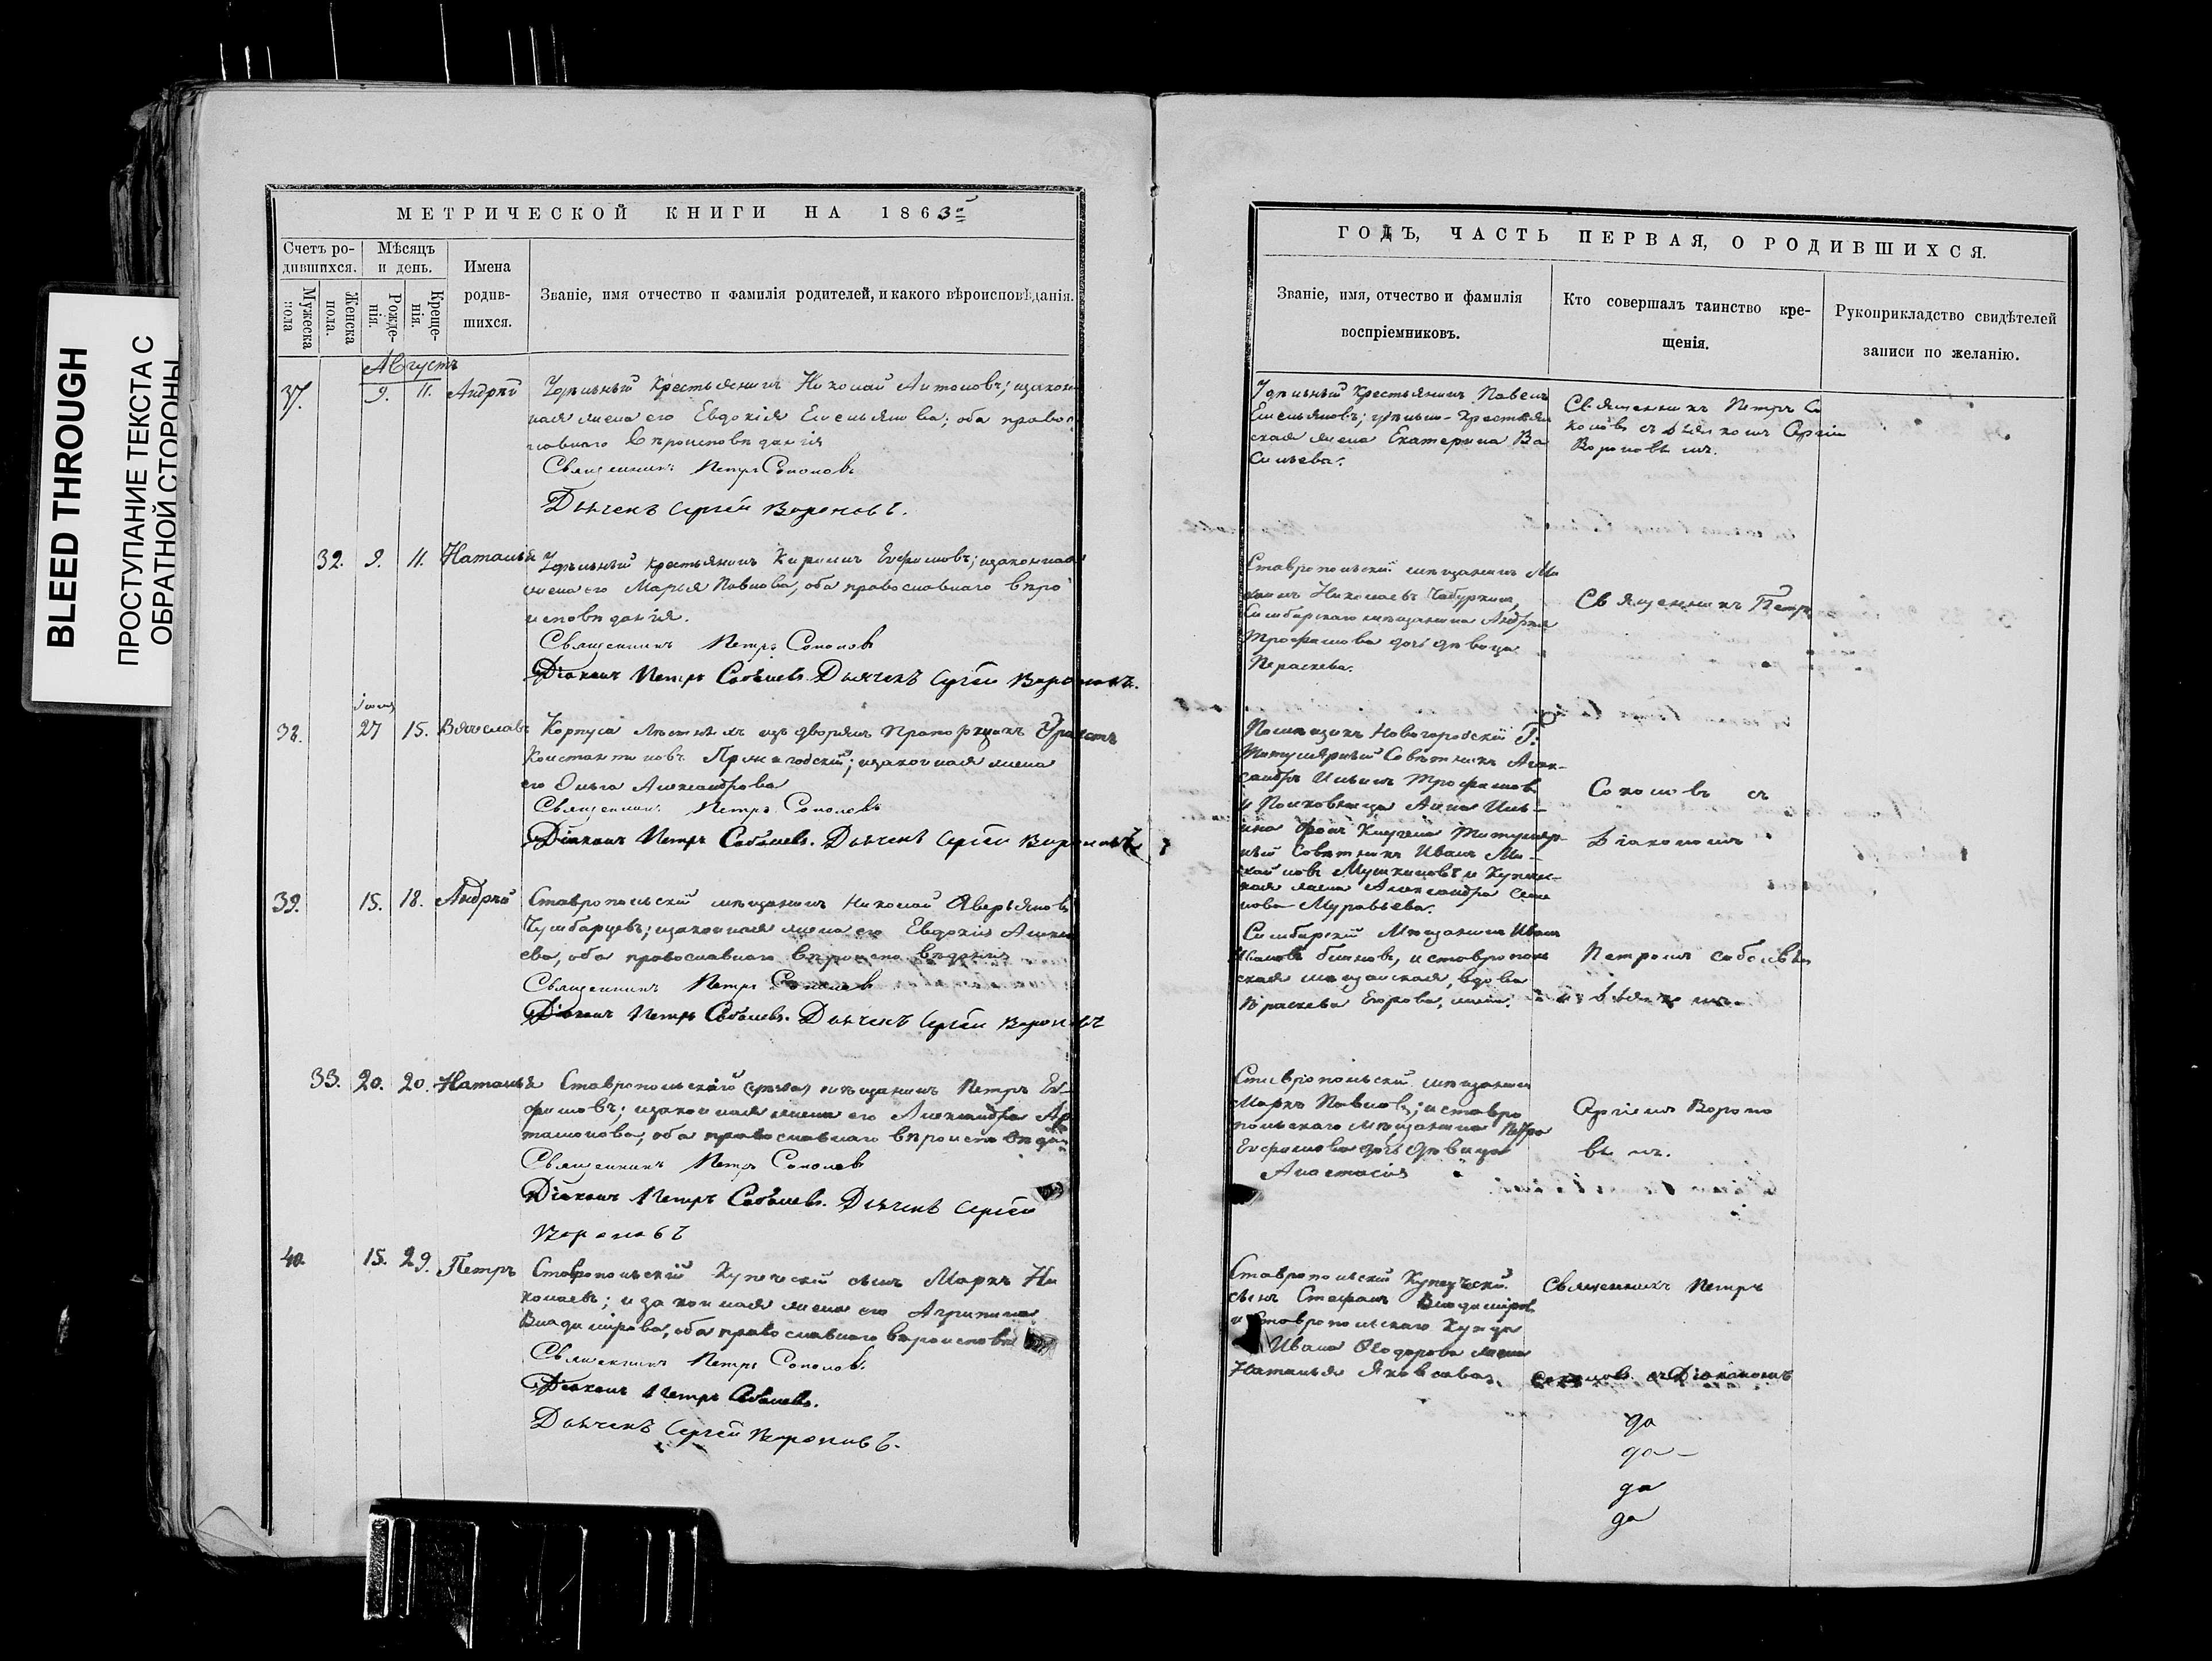 BLEED THROUGH
ПРОСТУПАНИЕ ТЕКСТА С
ОБРАТНОЙ СТОРОНЫ
МЕТРИЧЕСКОЙ КНИГИ НА 1863
Счетъ ро-
дившихся.
Мужеска
пола
Женска
пола.
Мѣсяцъ
и день.
Рожде-
нія.
Креще-
нія.
Имена
родив-
шихся.
Званіе, имя отчество и фамилія родителей, и какого вѣроисповѣданія.
Августъ
37. 9. 11. Андрей
Удѣльный крестьянинъ Николай Антоновъ; и закон
ная жена его Евдокія Емельянова; оба право
славнаго вѣроисповѣданія
Священникъ Петръ Соколовъ
Дьячекъ Сергѣй Вороновъ.
32. 9. 11. Наталія
Удѣльный крестьянинъ Ефимовъ; и законная
жена его Марья Павлова, оба православнаго вѣро
исповѣданія.
Священникъ Петръ Соколовъ
Діаконъ Петръ Соболевъ. Дьячекъ Сергѣй Вороновъ.
27 15. Вячеславъ
Корпуса изъ дворянъ Прапорщикъ
Константиновъ; и законная жена
его Ольга Александрова
Священникъ Петръ Соколовъ
Діаконъ Петръ Соболевъ. Дьячекъ Сергѣй Вороновъ
39. 15. 18. Андрей
Ставропольскій мѣщанинъ Николай Аверьяновъ
и законная жена его Евдокія Алексѣ
ева, оба православнаго вѣроисповѣданія
Священникъ Петръ Соколовъ
Діаконъ Петръ Соболевъ. Дьячекъ Сергѣй Вороновъ
33. 20. 20. Наталья
Ставропольскаго мѣщанинъ Петръ Ев
фимовъ; и законная жена его Александра Ар
тамонова, оба православнаго вѣроисповѣдан
Священникъ Петръ Соколовъ
Діаконъ Петръ Соболевъ. Дьячекъ Сергѣй
Вороновъ
40. 15. 29. Петръ
Ставропольскій Купеческій сынъ Маркъ Ни
колаевъ; и законная жена его Агрипина
Владимірова, оба православнаго вѣроисповѣ
Священникъ Петръ Соколовъ.
Діаконъ Петръ Соболевъ.
Дьячекъ Сергѣй Вороновъ.
ГОДЪ, ЧАСТЬ ПЕРВАЯ, О РОДИВШИХСЯ.
Званіе, имя, отчество и фамилія
воспріемниковъ.
Кто совершалъ таинство кре-
щенія.
Рукоприкладство свидѣтелей
записи по желанію.
Удѣльный крестьянинъ Павелъ
Емельяновъ; удѣльно-крестьян
ская жена Екатерина Ва
сильева.
Священникъ Петръ Со
коловъ съ дьячкомъ Сергіем
Вороновымъ.
Ставропольскій мѣщанинъ Ми
хаилъ Николаевъ
Симбирскаго мѣщанина Андрея
Трофимова дочь дѣвица
Параскева.
Священникъ Петръ
Помѣщикъ Новогородской Г.
Титулярный Совѣтникъ Алек-
сандръ Ильинъ Трофимовъ
и Полковница Анна Иль-
ина Титуляр-
ный Совѣтникъ Иванъ Ми-
хайловъ и Купече-
ская жена Александра Семе
нова Муравьева.
Соколовъ съ
Діакономъ
Симбирскій Мѣщанинъ Иванъ
Ивановъ и ставрополь
ская мѣщанская вдова
Параскева Егорова
Петромъ Соболевым
и дьячкомъ
Ставропольскій мѣщанинъ
Маркъ Павловъ; и ставро
польскаго мѣщанина Петра
Евфимова дочь дѣвица
Анастасія
Сергіемъ Вороно
вымъ.
Ставропольскій Купеческій
сынъ Стефанъ Владиміров
и Ставропольскаго Купца
Ивана Ѳеодорова жена
Наталья Яковлева
Священникъ Петръ
Соколовъ съ Діакономъ
да
да
да
да